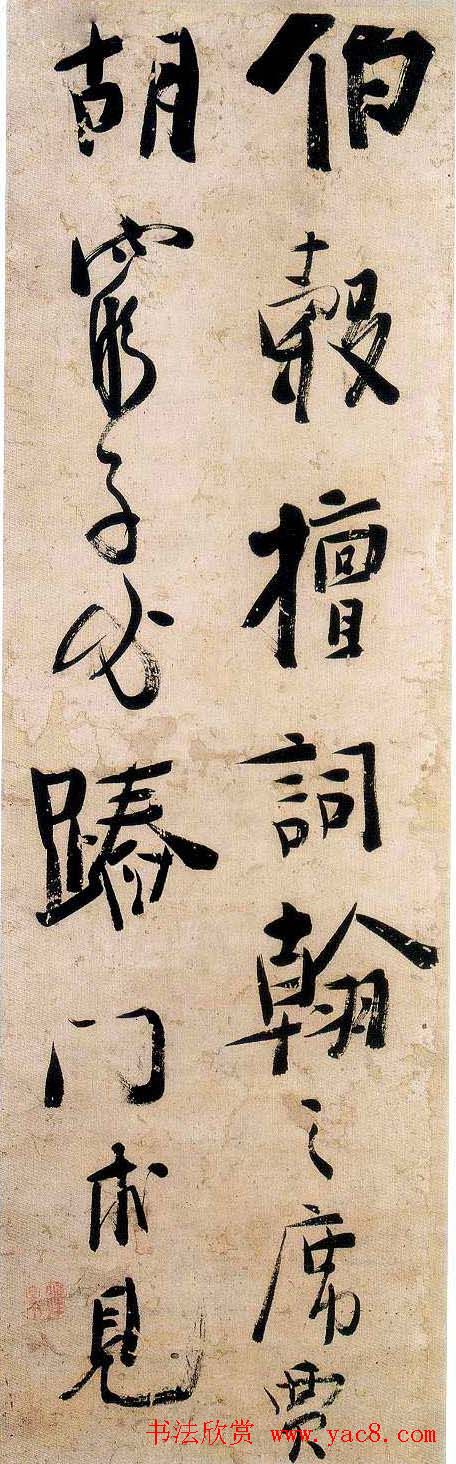 伯穀擅詞翰之席賈
胡窮子必門求見
书法欣赏 www.yac8.com